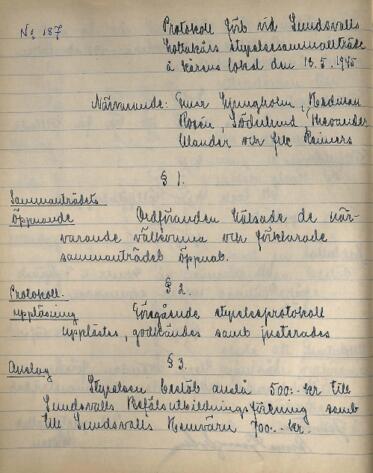 No 187
Protokoll förb vid Sundsvalls
Lottakårs styrelsesammanträde
å kårens lokal den 13.5.1945
Närvarande:
Rosén, Söderlund,
och frk Reimers
§ 1.
Sammanträdets
öppnande Ordföranden hälsade de när-
varande välkomna och förklarade
sammanträdet öppnat.
§ 2.
Protokoll.
uppläsning Föregående styrelseprotokoll
upplästes, godkändes samt justerades
§ 3.
Anslag
Styrelsen beslöt anslå 500:- kr till
Sundsvalls Befälsutbildningsförening samt
till Sundsvalls Hemvärn 700.- kr.